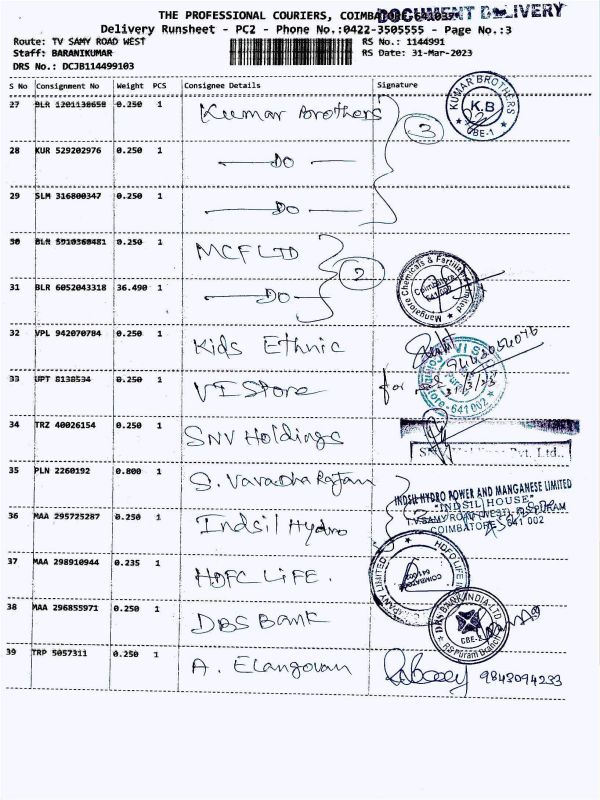 THE PROFESSIONAL COURIERS, COIMBATORE-641037
DOCUMENT DELIVERY
Delivery Runsheet - PC2 - Phone No.:0422-3505555 - Page No.:3
Route: TV SAMY ROAD WEST RS No.: 1144991
Staff: BARANIKUMAR RS Date: 31-Mar-2023
DRS No.: DCJB114499103
S No Consignment No Weight PCS Consignee Details Signature
27 BLR 1201138658 0.250 1 Kumar Brothers 3
KUMAR BROTHERS
K.B
CBE-1
28 KUR 529202976 0.250 1 DO
29 SLM 316800347 0.250 1 DO
30 BLR 5910368481 0.250 1 MCF LTD 2
31 BLR 6052043318 36.490 1 DO
Mangalore Chemicals & Fertilizers Limited
Coimbatore
641 002
32 VPL 942070784 0.250 1 Kids Ethnic
33 UPT 8138534 0.250 1 VI Store for
31/3/23
641 002
34 TRZ 40026154 0.250 1 SNV Holdings
Pvt. Ltd.,
35 PLN 2260192 0.800 1 S. Varadha Rajan
36 MAA 295725287 0.250 1 Indsil Hydro
INDSIL HYDRO POWER AND MANGANESE LIMITED
"INDSIL HOUSE"
T.V.SAMY ROAD (WEST), R.S.PURAM
COIMBATORE - 641 002
37 MAA 298910944 0.235 1 HDFC LIFE.
COIMBATORE
641002
38 MAA 296855971 0.250 1 DBS Bank
DBS BANK INDIA LTD
CBE-2
RS Puram Branch
39 TRP 5057311 0.250 1 A. Elangovan 9843094233